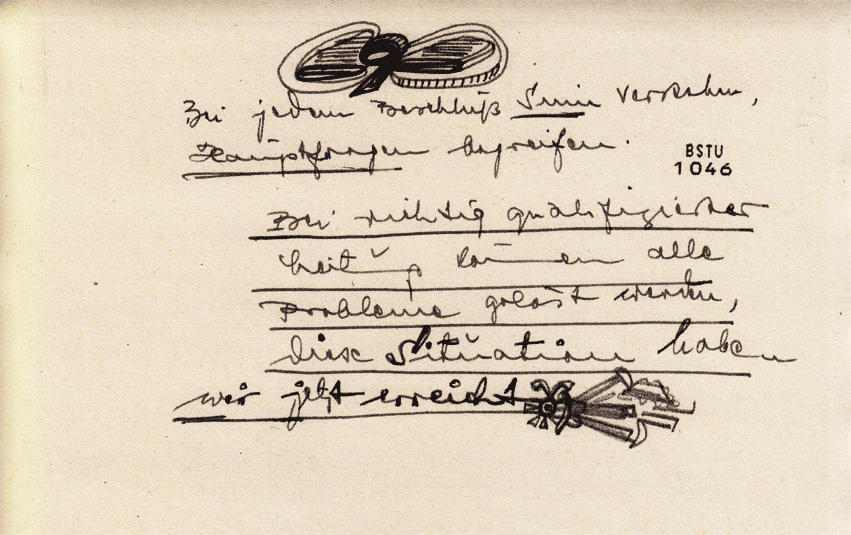 Bei jedem Beschluß Sinn verstehen,
Hauptfragen begreifen.
BSTU
1046
Bei richtig qualifizierter
Leitung können alle
Probleme gelöst werden,
diese Situation haben
wir jetzt erreicht